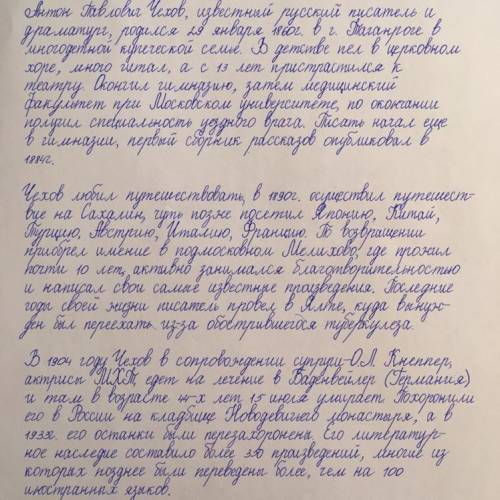 Антон Павлович Чехов, известный русский писатель и
драматург, родился 29 января 1860г. в г. Таганроге в
многодетной купеческой семье. В детстве пел в церковном
хоре, много читал, а с 13 лет пристрастился к
театру. Окончил гимназию, затем медицинский
факультет при Московском университете, по окончании
получил специальность уездного врача. Писать начал еще
в гимназии, первый сборник рассказов опубликовал в
1884г.
Чехов любил путешествовать, в 1890г. осуществил путешест-
вие на Сахалин, чуть позже посетил Японию, Китай,
Турцию, Австрию, Италию, Францию. По возвращении
приобрел имение в подмосковном Мелихово, где прожил
почти 10 лет, активно занимался благотворительностью
и написал свои самые известные произведения. Последние
годы своей жизни писатель провел в Ялте, куда вынуж-
ден был переехать из-за обострившегося туберкулеза.
В 1904 году Чехов в сопровождении супруги-О.Л. Книппер,
актрисы МХТ, едет на лечение в Баденвейлер (Германия)
и там в возрасте 44-х лет 15 июля умирает. Похоронили
его в России на кладбище Новодевичьего монастыря, а в
его останки были перезахоронены. Его литератур-
ное наследие составило более 300 произведений, многие из
которых позднее были переведены более, чем на 100
иностранных языков.